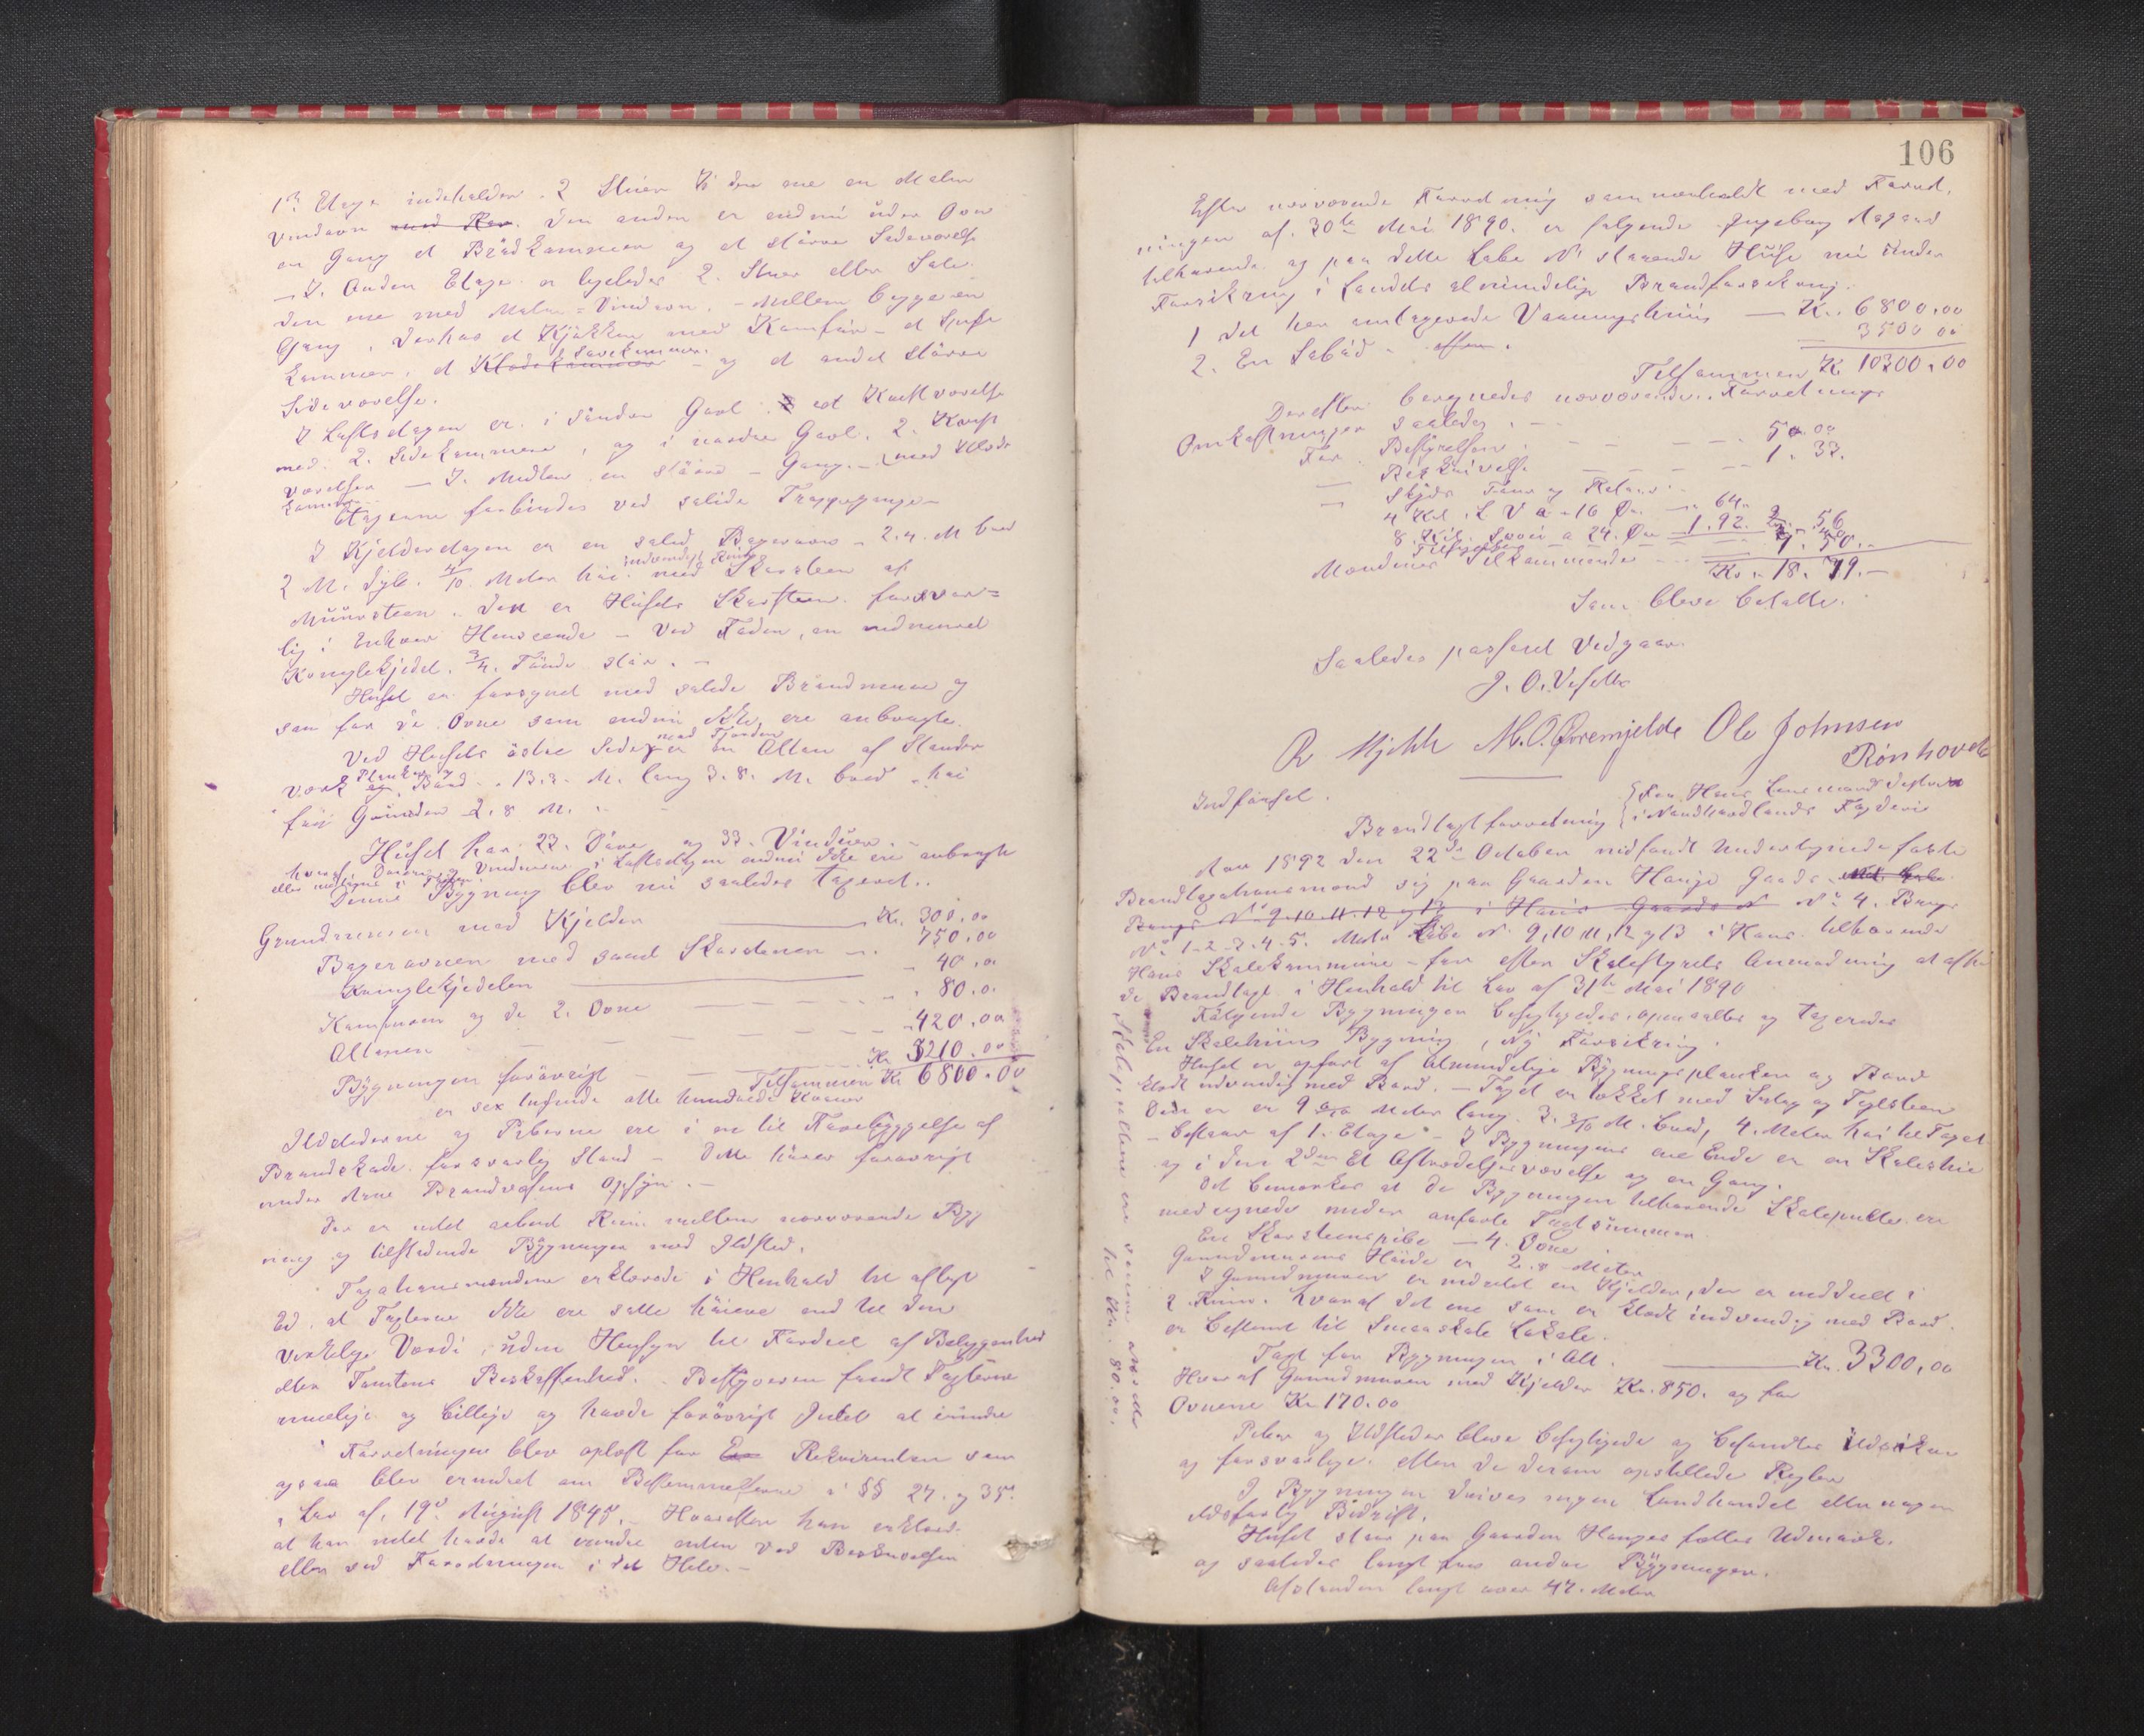 1ste Etage indeholder 2 Stuer i den ene en Malm
Vindovn med Rør. Den anden er endnu uden Ovn
en Gang et Brødkammer og et større Sideværelse
I Anden Etage er ligeledes 2 Stuer eller Sale
den ene med Malm=Vindovn. Mellem begge en
Gang, derhos et Kjøkken med Komfur - et
kammer, et Klædekammer og et andet større
Sideværelse.
I Loftsetagen er i søndre Gavl et Kvistværelse
med 2 Sidekammere, og i nordre Gavl 2 Kvist
værelser - I Midten en større Gang - med Klæde
kammer
Etagerne forbindes ved solide Trappegange -
I Kjelderetagen er en solid Bagerovn - 2.4 M bred
2 M. dyb. 4/10 Meter høi med Skorsteen af
indvendigt
Muursteen. Den er Husets Skorsteen forsvar=
lig i enhver Henseende - Ved Foden en indmuret
Konglekjedel 3/4 Tønde stor. -
Huset er forsynet med solide Brandmure og
saa for de Ovne som endnu ikke ere anbragte.
Ved Husets østre Side er en Altan af Stander
mod Fjorden
værk Planker og Bord. 13.2 M. lang 3.8. M. bred høi
fra Grunden 2.8 M.
Huset har 22. Døre og 33. Vinduer. -
hvoraf Dørene og Vinduerne i Loftsetagen endnu ikke ere anbragte
Denne Bygning blev nu saaledes taxeret..
Grundmuren med Kjelder Kr. 300,00
Bagerovnen med samt Skorstenen 750,00
Kongelkjedelen 40,00
Komfuren og de 2. Ovne 80.0.
Altanen 420,00
Bygningen forøvrigt Kr. 5210.00
Tilsammen Kr 6800.00
er sex tusende otte hundrede Kroner
Ildstederne og Piberne ere i en til Forebyggelse af
Brandskade forsvarlig Stand - Dette hører forøvrigt
under Brandvæsens Opsyn. -
Der er intet aabent Rum mellem nærværende Byg
ning og tilstødende Bygninger med Ildsted.
Taxationsmændene erklærede i Henhold til aflagt
Ed, at Taxterne ikke ere satte høiere end til den
virkelige Værdi, uden Hensyn til Fordeel af Beliggenhed
eller Tomtens Beskaffenhed. - Bestyreren fandt Taxterne
rimelige og billige og havde forøvrigt Intet at erindre
Forretningen blev oplæst for Rekvirenten som
ogsaa blev erindret om Bestemmelserne i §§ 27. og 35.
i Lov af 19de August 1845. - Hvorefter han erklærede
at han intet havde at erindre enten ved Beskrivelsen
eller ved Forretningen i det Hele. -
106
Efter nærværende Forretning sammenholdt med Forret,
ningen af 30te Mai 1890 er følgende Ingeborg Aagaard
tilhørende og paa dette Løbe No staaende Huse nu under
Forsikring i Landets almindelige Brandforsikring.
1 Det her omtaxerede Vaaningshuus — Kr. 6800.00
2. En Søbod - 3500 00
Tilsammen Kr 10300.00
Derefter beregnedes nærværende Forretnings
Omkostninger saaledes. -
For Bestyrelsen 5.00
- Beskrivelse 1. 33.
- Skyds Frem og Retur -
4 Kil. L V a 16 Øre - 64.
8. Kil. Søvei a 24. Øre 1.92. 2. 56
Mændenes Tilkommende
Kr. 18. 79. -
Som bleve betalte.
Saaledes passeret Vedgaar
J. O. Veseth
R Mjelde M. O. Øvremjelde Ole Johnsen
Rønhovde
Indførsel.
Brandtaxtforretning { For Hans Lensmandsdistrikt
{ i Nordhordlands Fogderi
Aar 1892 den 22de October indfandt Undertegnede faste
Brandtaxationsmænd sig paa Gaarden Hauge Gaards
No 9.10.11.12 og 13 i Haus Gaards No No 4. Brugs
No 1-2-3-4-5. Matr Løbe No 9, 10, 11, 12 og 13 i Haus tilhørende
Haus Skolekommune - for efter Skolestyrets Anmodning at afhol
de Brandtaxt i Henhold til Lov af 31te Mai 1890
Følgende Bygninger besigtigedes, opmaaltes og taxeredes
En Skolehuus Bygning, Ny Forsikring.
Huset er opført af almindelige Bygningsplanker og Bord
klædt udvendig med Bord. - Taget er tækket med Sutag og Taglsteen
Det er 9 Meter lang. 3. 3/10 M. bred, 4. Meter høi til Taget
- bestaar af 1. Etage - I Bygningens ene Ende er en Skolestue
og i den 2den Et Aftrædelsesværelse og en Gang.
Det bemærkes at de Bygningen tilhørende Skolepulte ere
medregnede under anførte Taxtsummer.
En Skorsteenspibe - 4. Ovne
Grundmurens Høide er 2.8 Meter
I Grundmuren er indrettet en Kjelder, der er inddeelt i
2 Rum. hvoraf det ene som er klædt indvendig med Bord
er bestemt til Smaaskole Lokale.
Taxt for Bygningen i Alt. Kr. 3300,00
Hvoraf Grundmuren med Kjelder Kr. 850. og for
Ovnene Kr 170.00
Piber og Ildsteder bleve besigtigede og befandtes ildsikre
og forsvarlige efter de derom opstillede Regler
I Bygningen drives ingen Landhandel eller nogen
ildsfarlig Bedrift.
Huset staar paa Gaarden Hauges fælles Udmark.
og saaledes langt fra andre Bygninger.
Afstanden langt over 47. Meter
Skolepultene ere ansatte
til Kr. 80.00.